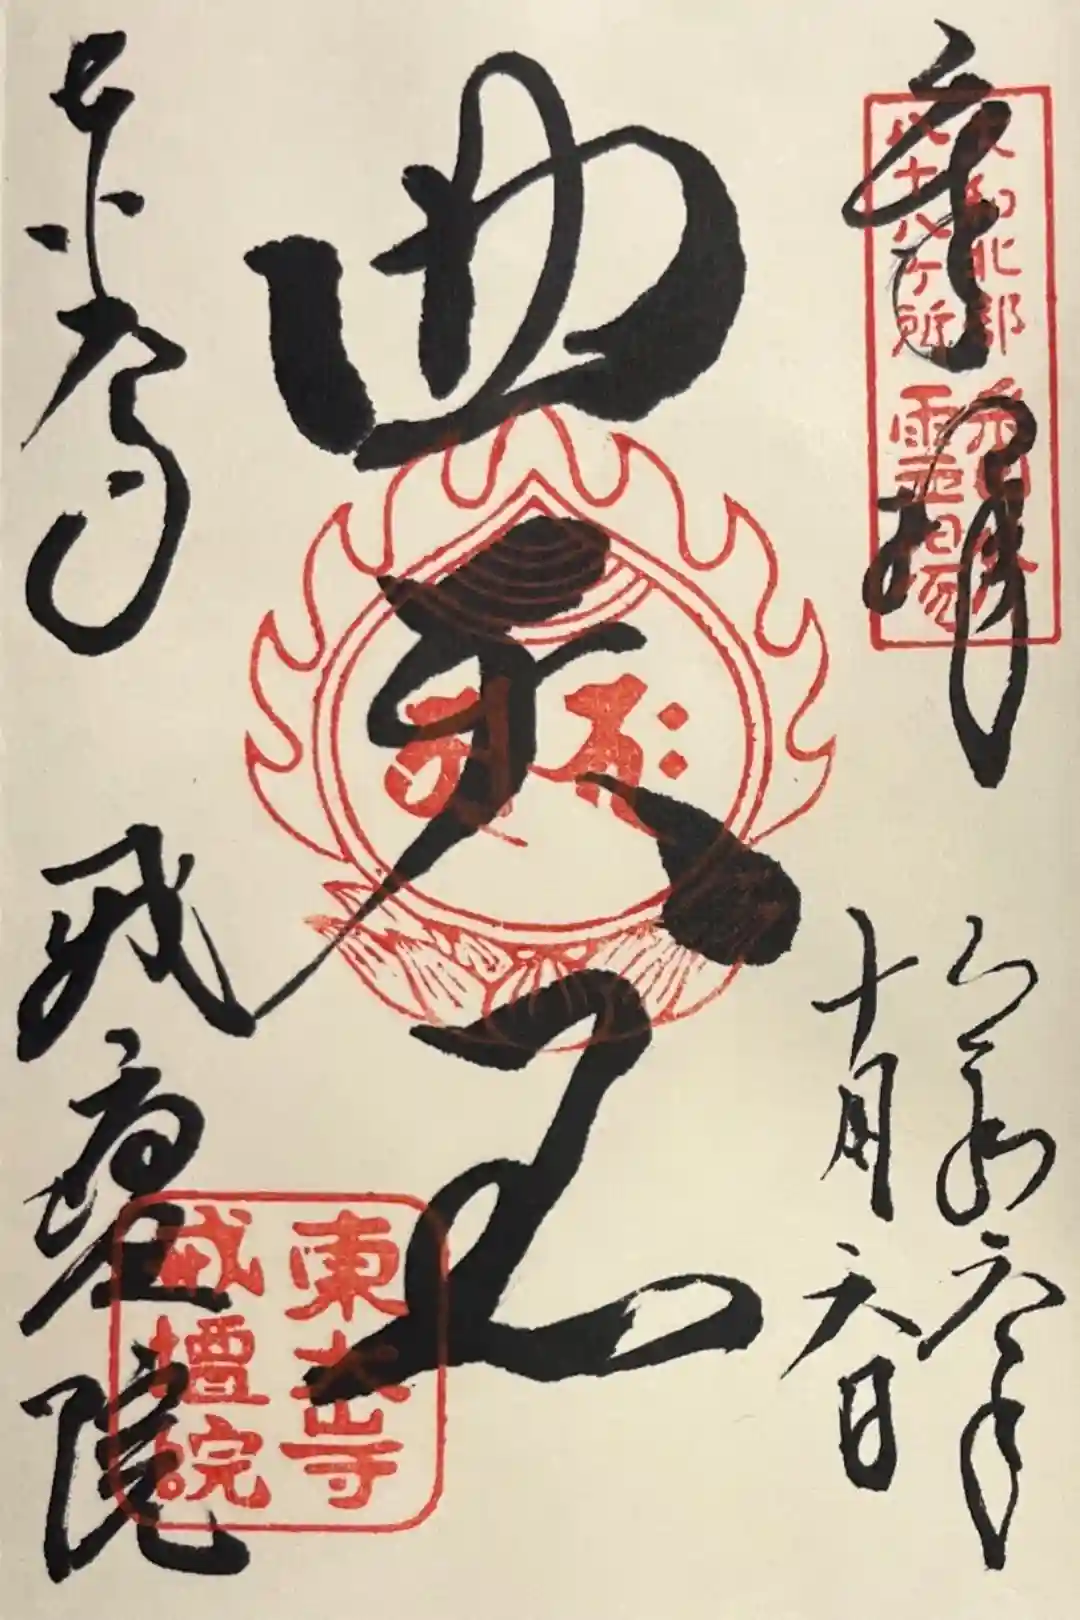 奉拝
大和北部
八十八ヶ所
霊場
令和六年
十月六日
四天王
東大寺 戒壇院
東大寺
戒壇院